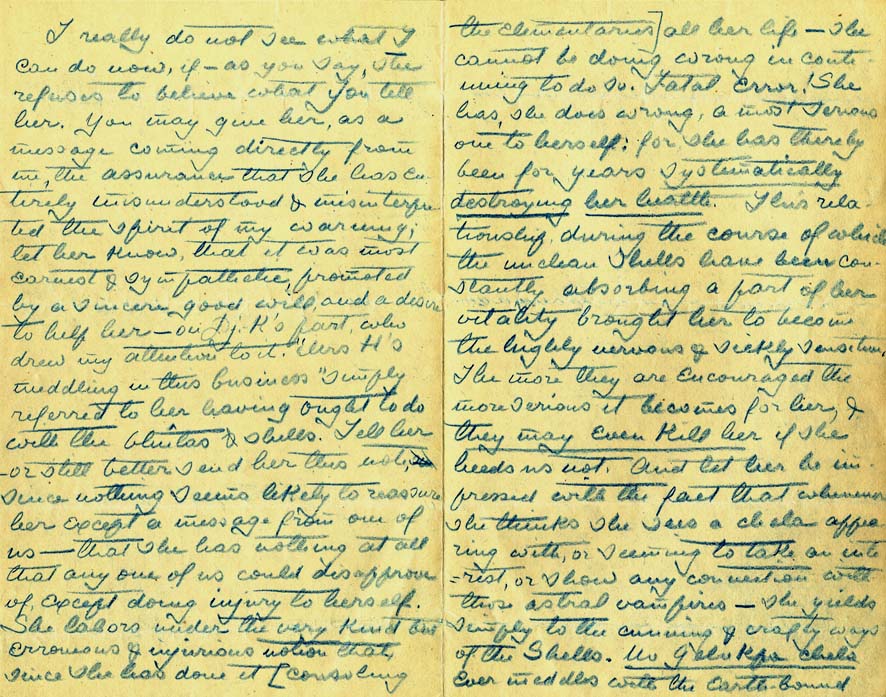 I really do not see what I
can do now, if – as you say, she
refuses to believe what you tell
her. You may give her, as a
message coming directly from
me, the assurance that she has en-
tirely misunderstood & misinterpre
ted the spirit of my warning;
let her know, that it was most
earnest & sympathetic, promoted
by a sincere good will, and a desire
to help her – on Dj. K's part, who
drew my attention to it. "Mrs H's
meddling in this business" simply
referred to her having ought to do
with the bhutas & shells. Tell her
– or still better send her this note
since nothing seems likely to reassure
her except a message from one of
us – that she has nothing at all
that any one of us could disapprove
of, except doing injury to herself.
She labors under the very kind but
erroneous & injurious notion that,
since she has done it [consoling
the Elementaries] all her life – she
cannot be doing wrong in conti-
nuing to do so. Fatal Error! She
has, she does wrong, a most serious
one to herself; for she has thereby
been for years systematically
destroying her health. This rela-
tionship, during the course of which
the unclean Shells have been con-
stantly absorbing a part of her
vitality brought her to become
the highly nervous & sickly sensitive.
The more they are encouraged the
more serious it becomes for her, &
they may even Kill her if she
heeds us not. And let her be im-
pressed with the fact that whenever
she thinks she sees a chela appea
ring with, or seeming to take an inte
=rist, or show any connection with
those astral vampires – she yields
simply to the cunning & crafty ways
of the Shells. No Gelukpa chela
ever meddles with the Earth-bound